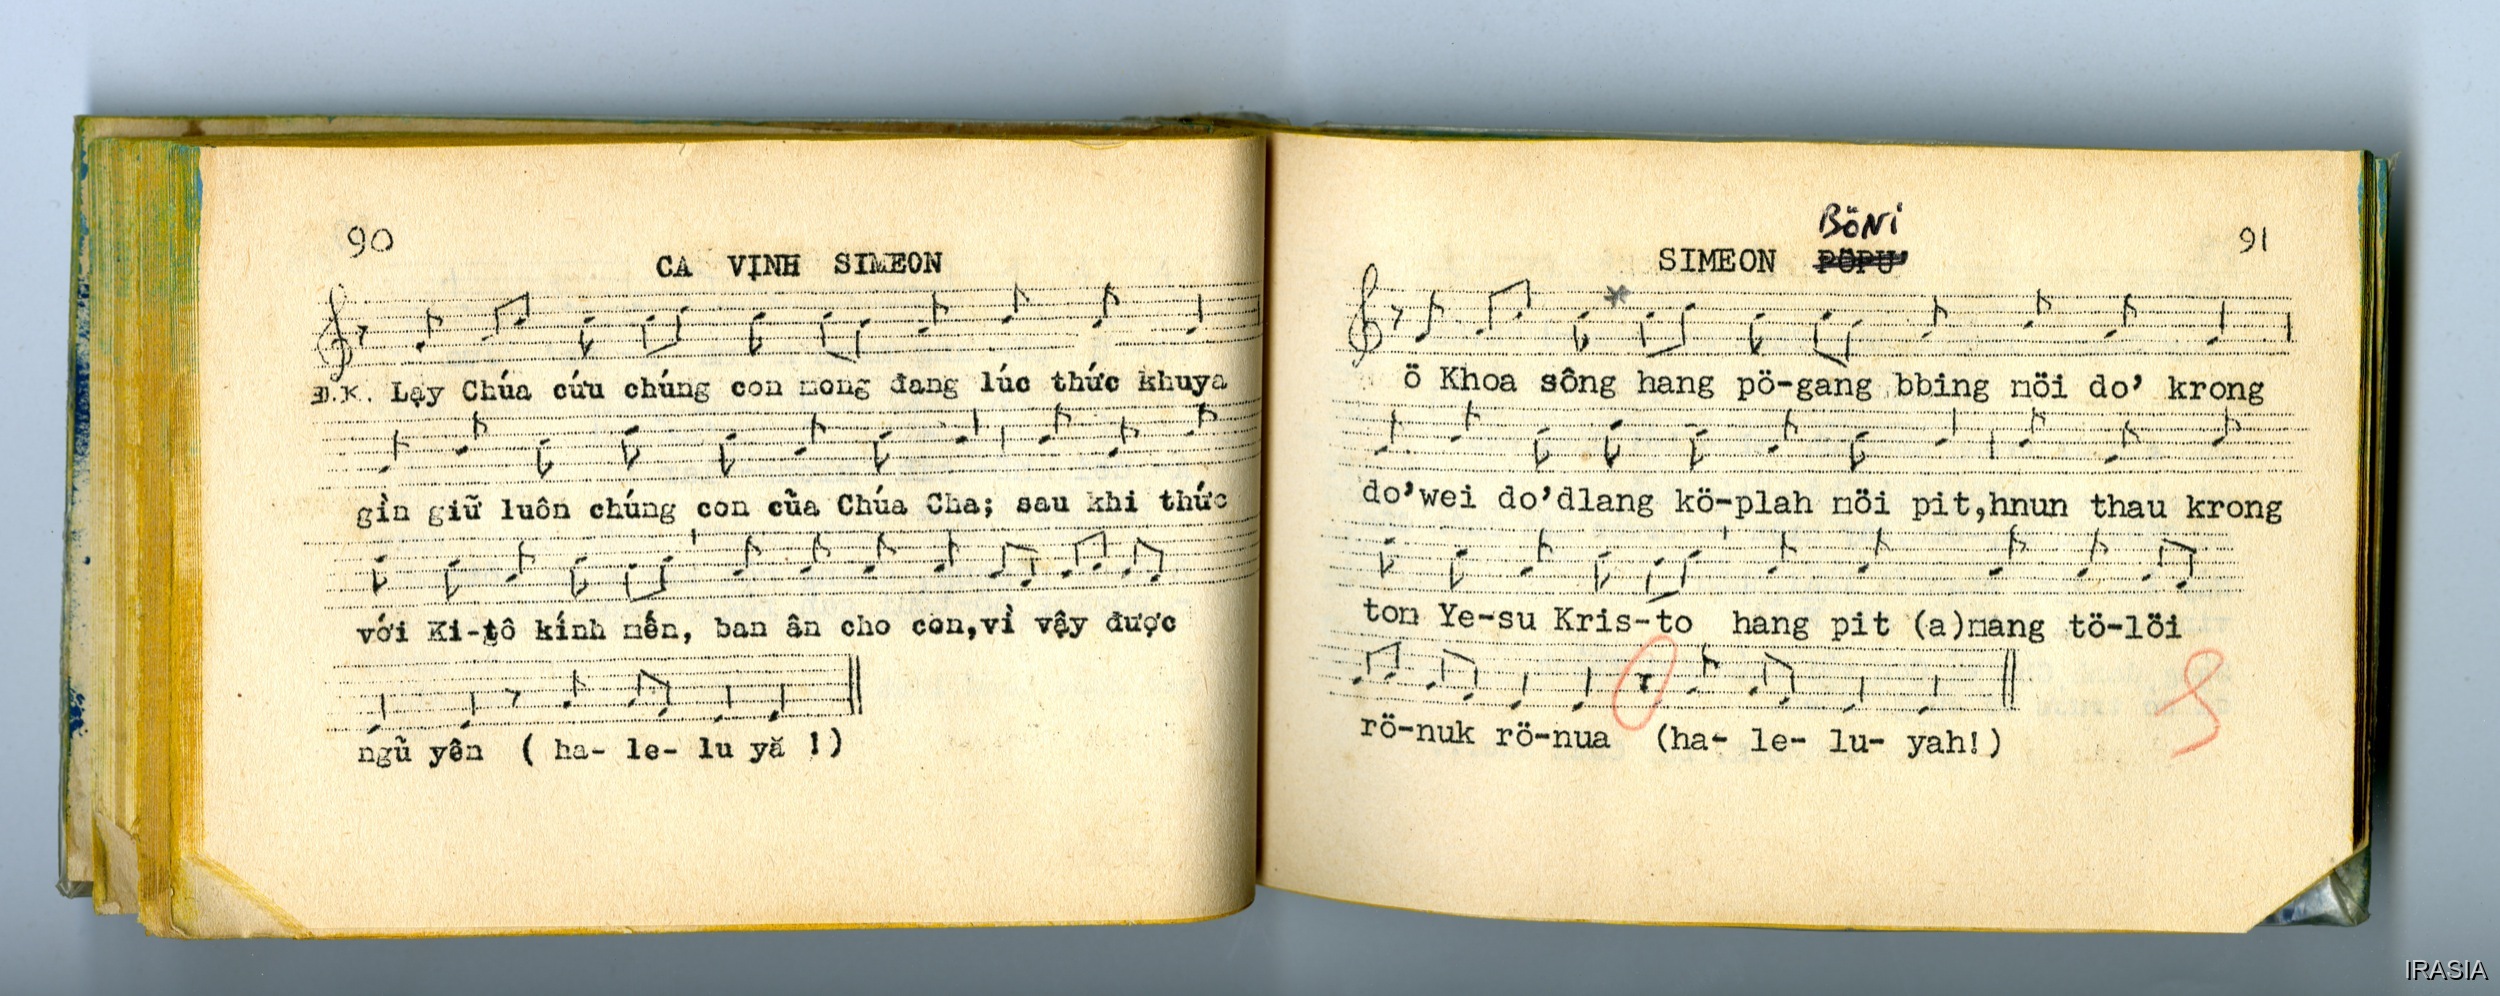 90
CA VỊNH SIMEON
Đ.K. Lạy Chúa cứu chúng con mong đang lúc thức khuya
gìn giữ luôn chúng con của Chúa Cha; sau khi thức
với Ki-tô kính mến, ban ân cho con,vì vậy được
ngũ yên ( ha- le- lu yă !)
91
BöNi
SIMEON PÖPU'
ö Khoa sông hang pö-gang bbing möi do' krong
do'wei do'dlang kö-plah möi pit,hnun thau krong
ton Ye-su Kris-to hang pit (a)nang tö-löi
rö-nuk rö-nua (ha- le- lu- yah!)
IRASIA